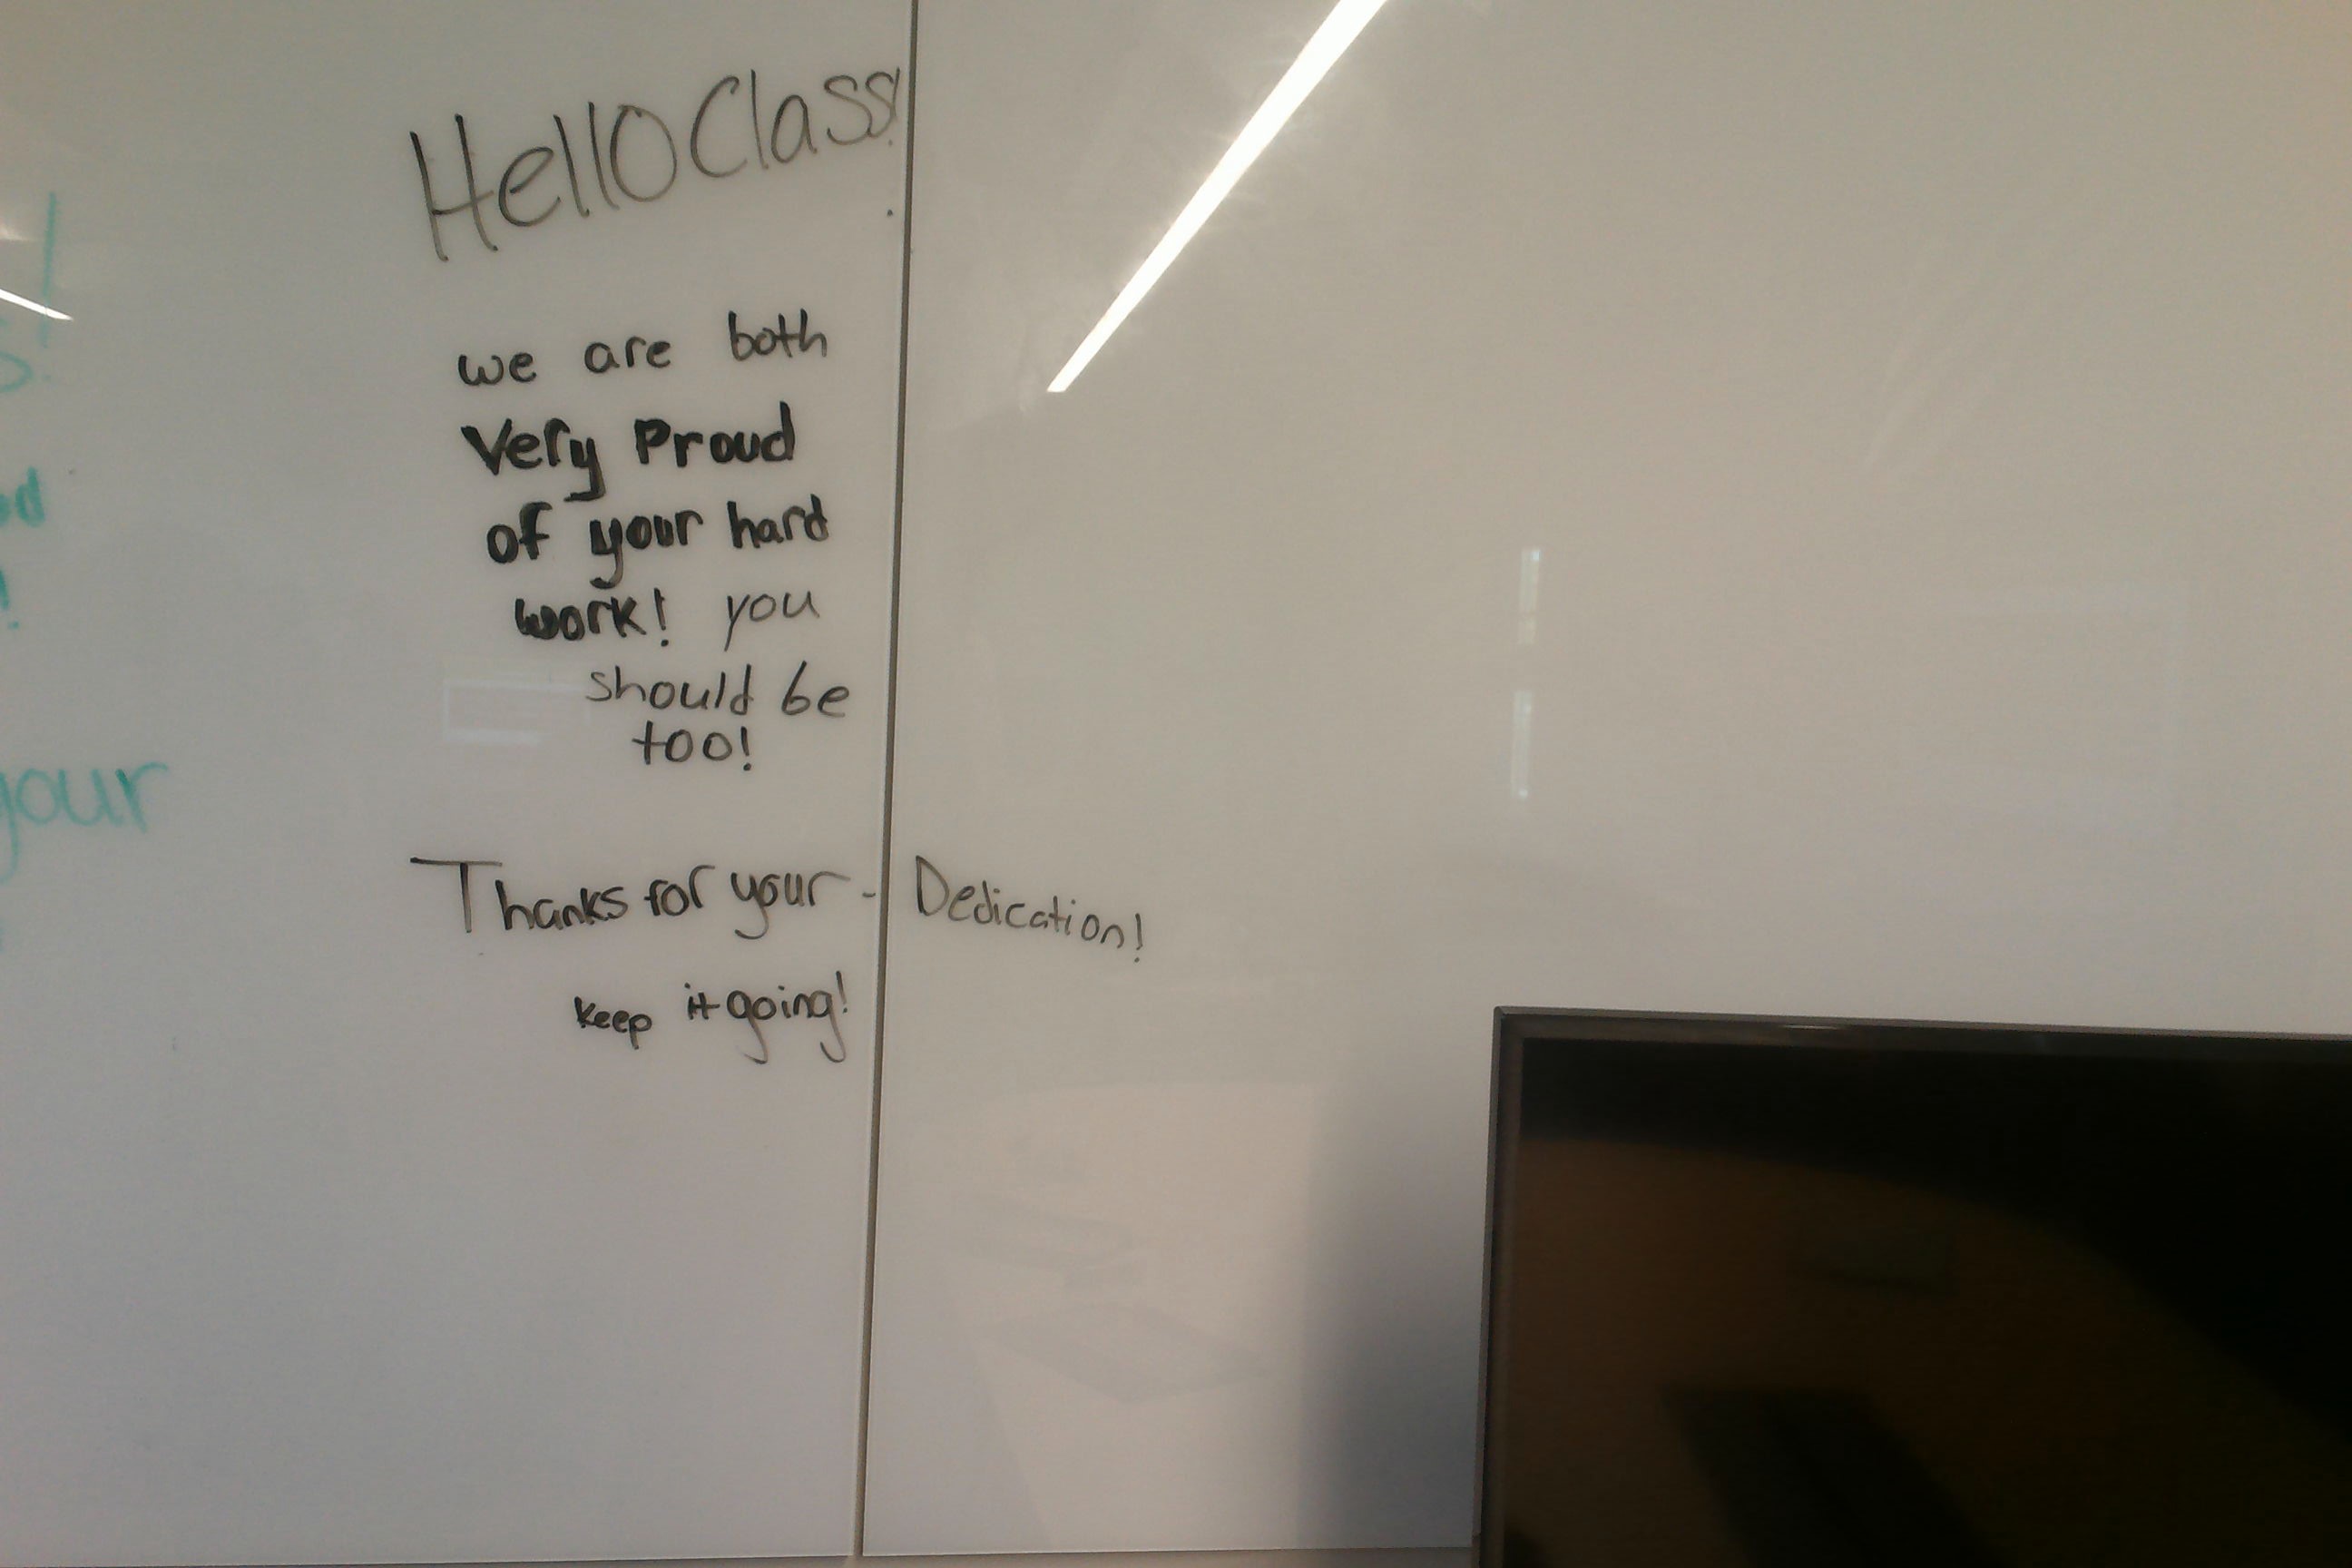 Hello Class!
we are both
Very Proud
of your hard
work! you
should be
too!
Thanks for your - Dedication!
keep it going!
your